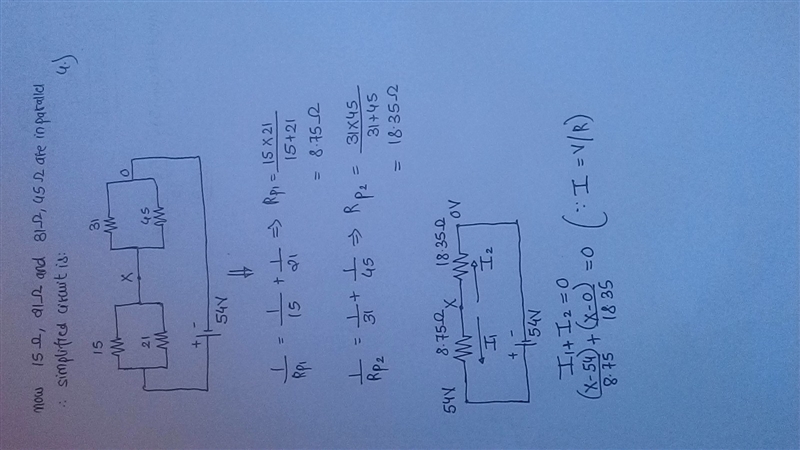 now 15Ω, 21Ω and 31Ω, 45Ω are in parallel
4.)
∴ simplified circuit is:
15
31
X
0
21
45
+ -
54V
⇓
1/Rp1 = 1/15 + 1/21 ⇒ Rp1 = 15×21/15+21
= 8.75Ω
1/Rp2 = 1/31 + 1/45 ⇒ Rp2 = 31×45/31+45
= 18.35Ω
54V 8.75Ω X 18.35Ω 0V
I1 I2
+ -
54V
I1 + I2 = 0
(X-54)/8.75 + (X-0)/18.35 = 0 (∵ I = V/R)